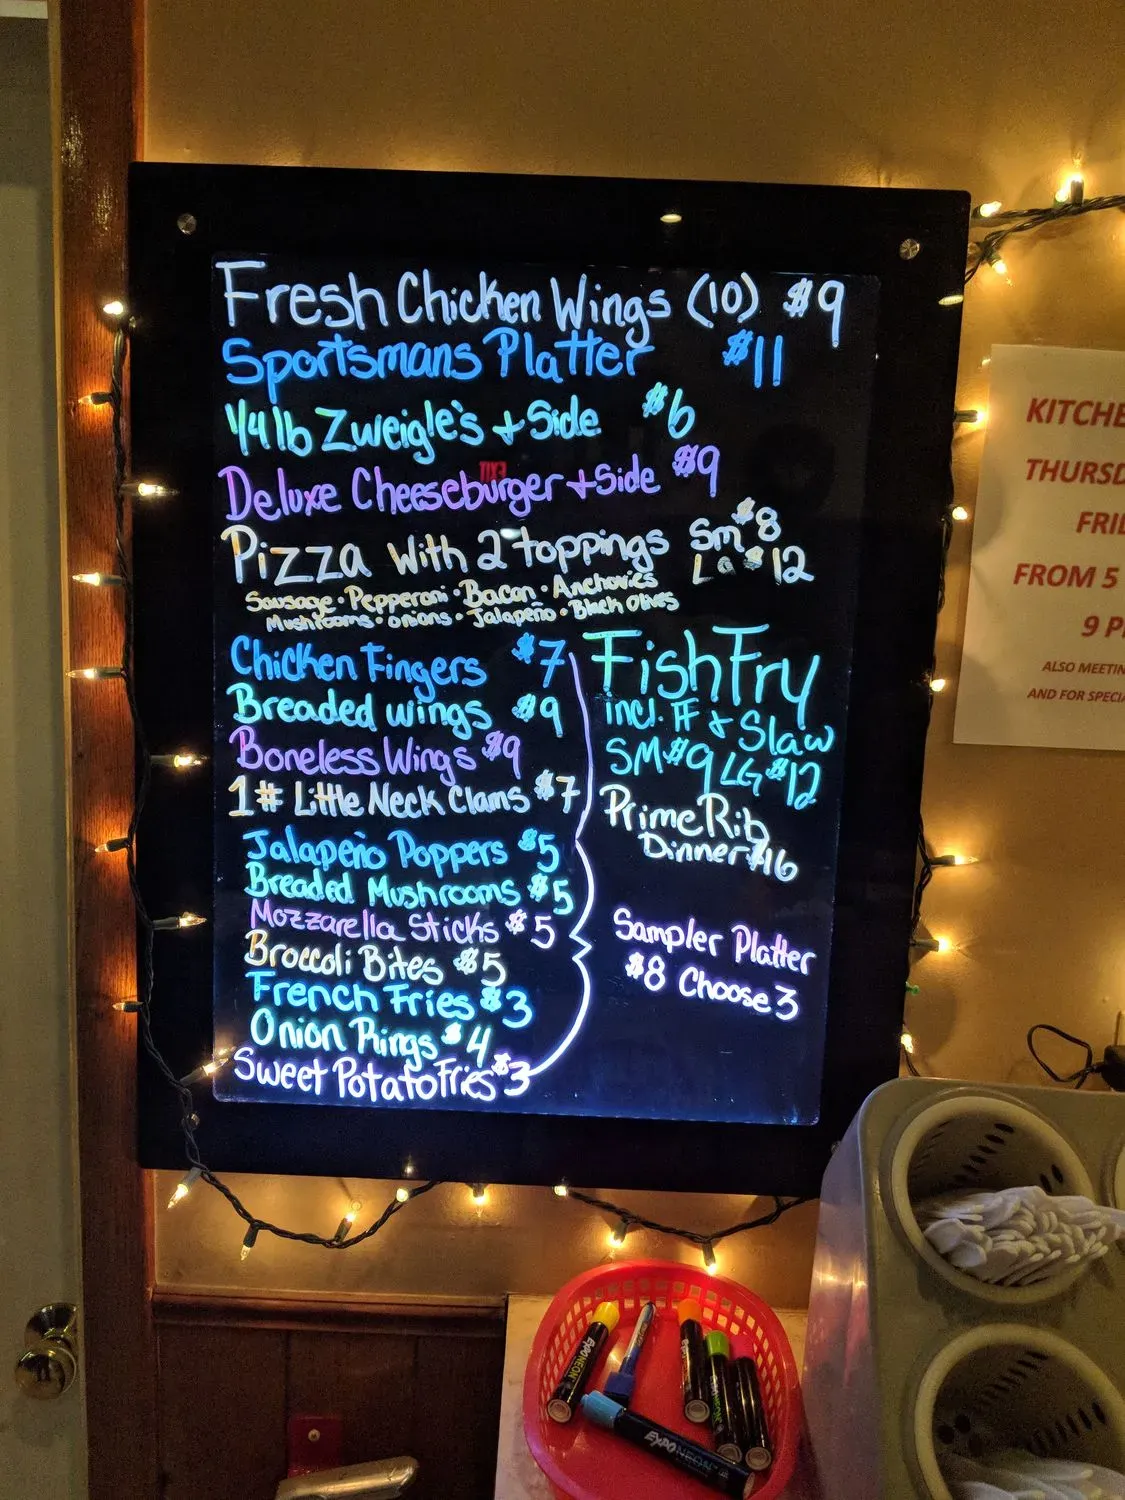 Fresh Chicken Wings (10) $9
Sportsmans Platter $11
1/4 lb Zweigle's + Side $6
Deluxe Cheeseburger + Side $9
EXIT
Pizza with 2 toppings Sm $8
La $12
Sausage • Pepperoni • Bacon • Anchovies
Mushrooms • onions • Jalapeño • Black Olives
Chicken Fingers $7
Breaded wings $9
Boneless Wings $9
1# Little Neck Clams $7
Jalapeño Poppers $5
Breaded Mushrooms $5
Mozzarella Sticks $5
Broccoli Bites $5
French Fries $3
Onion Rings $4
Sweet Potato Fries $3
Fish Fry
incl. FF + Slaw
SM $9 LG $12
Prime Rib
Dinner $16
Sampler Platter
$8 Choose 3
KITCHE
THURSD
FRI
FROM 5
9 P
ALSO MEETIN
AND FOR SPECIA
EXPO NEON
EXPO NEON